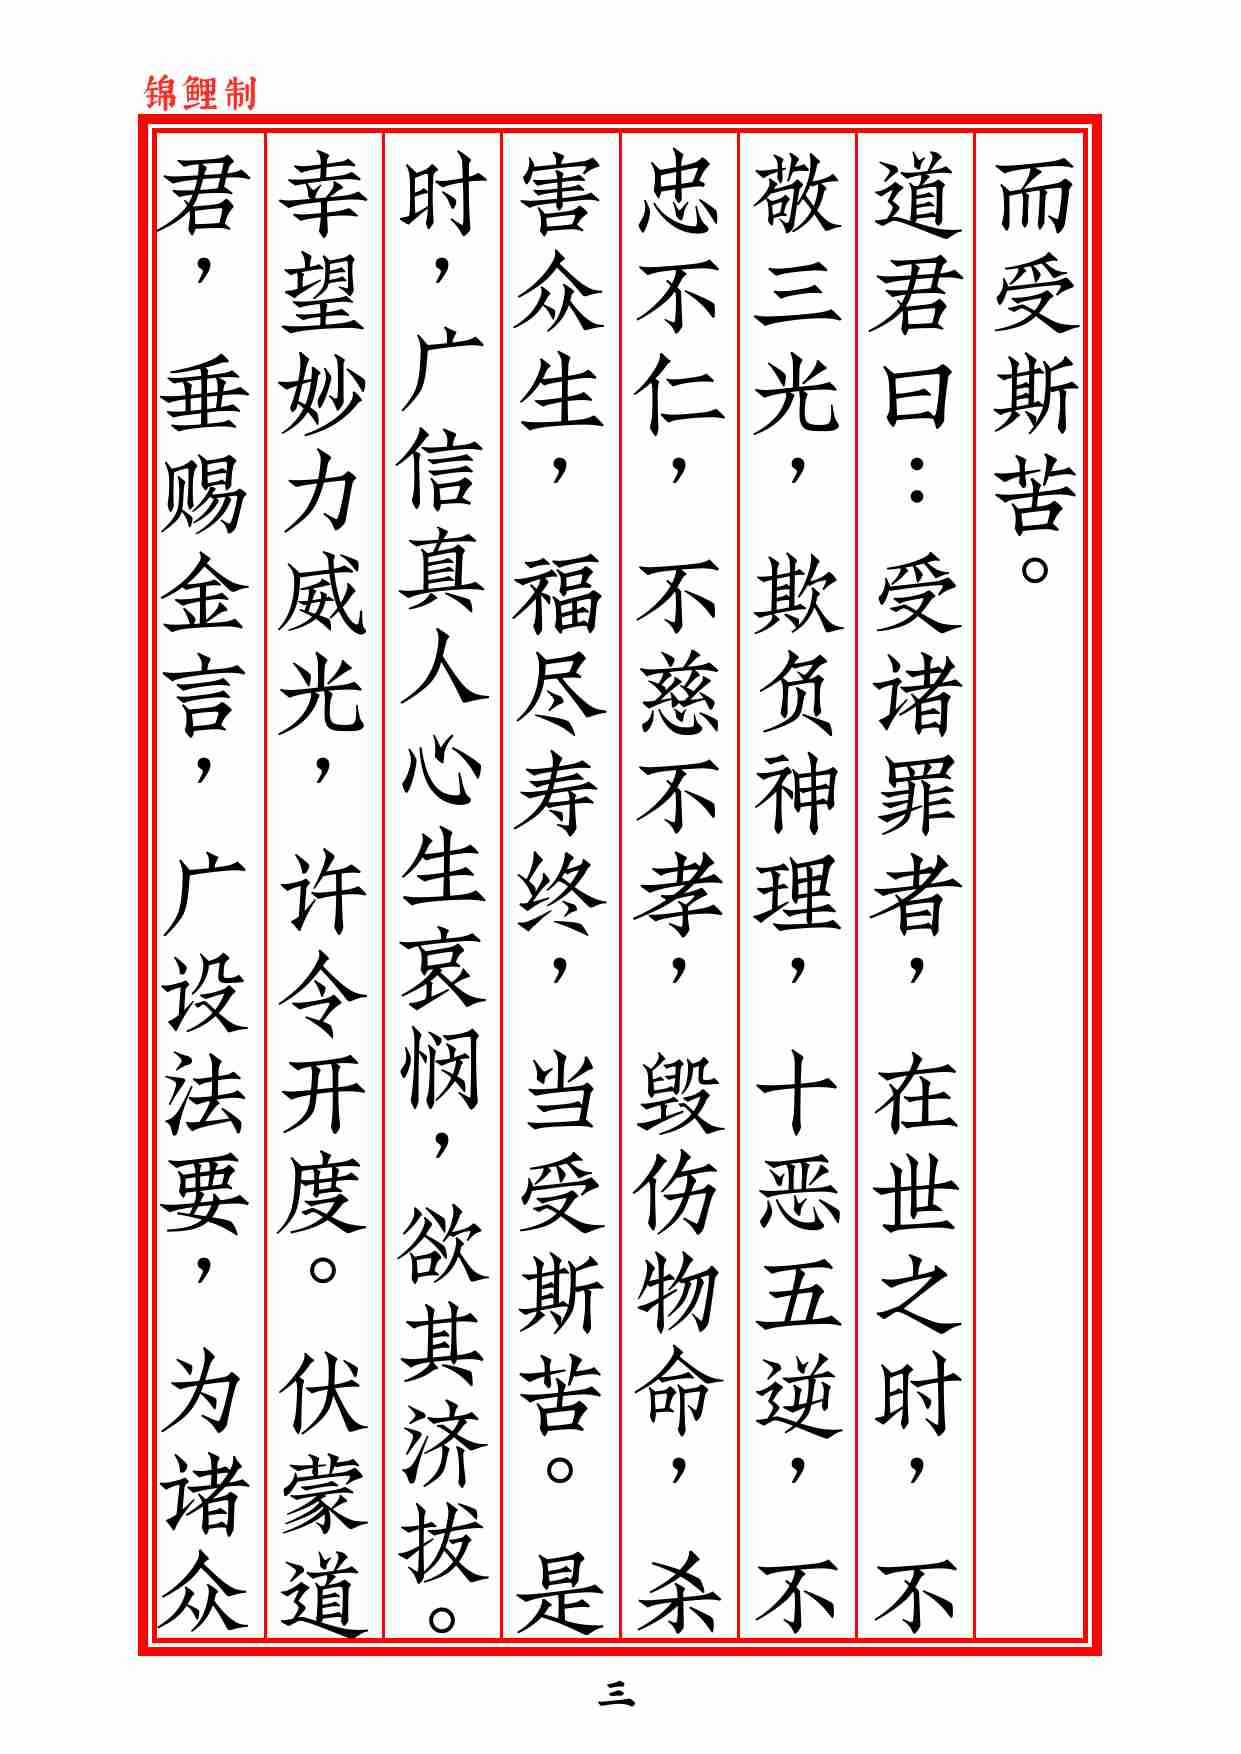 锦鲤制
而受斯苦。
道君曰：受诸罪者，在世之时，不
敬三光，欺负神理，十恶五逆，不
忠不仁，不慈不孝，毁伤物命，杀
害众生，福尽寿终，当受斯苦。是
时，广信真人心生哀悯，欲其济拔。
幸望妙力威光，许令开度。伏蒙道
君，垂赐金言，广设法要，为诸众
三